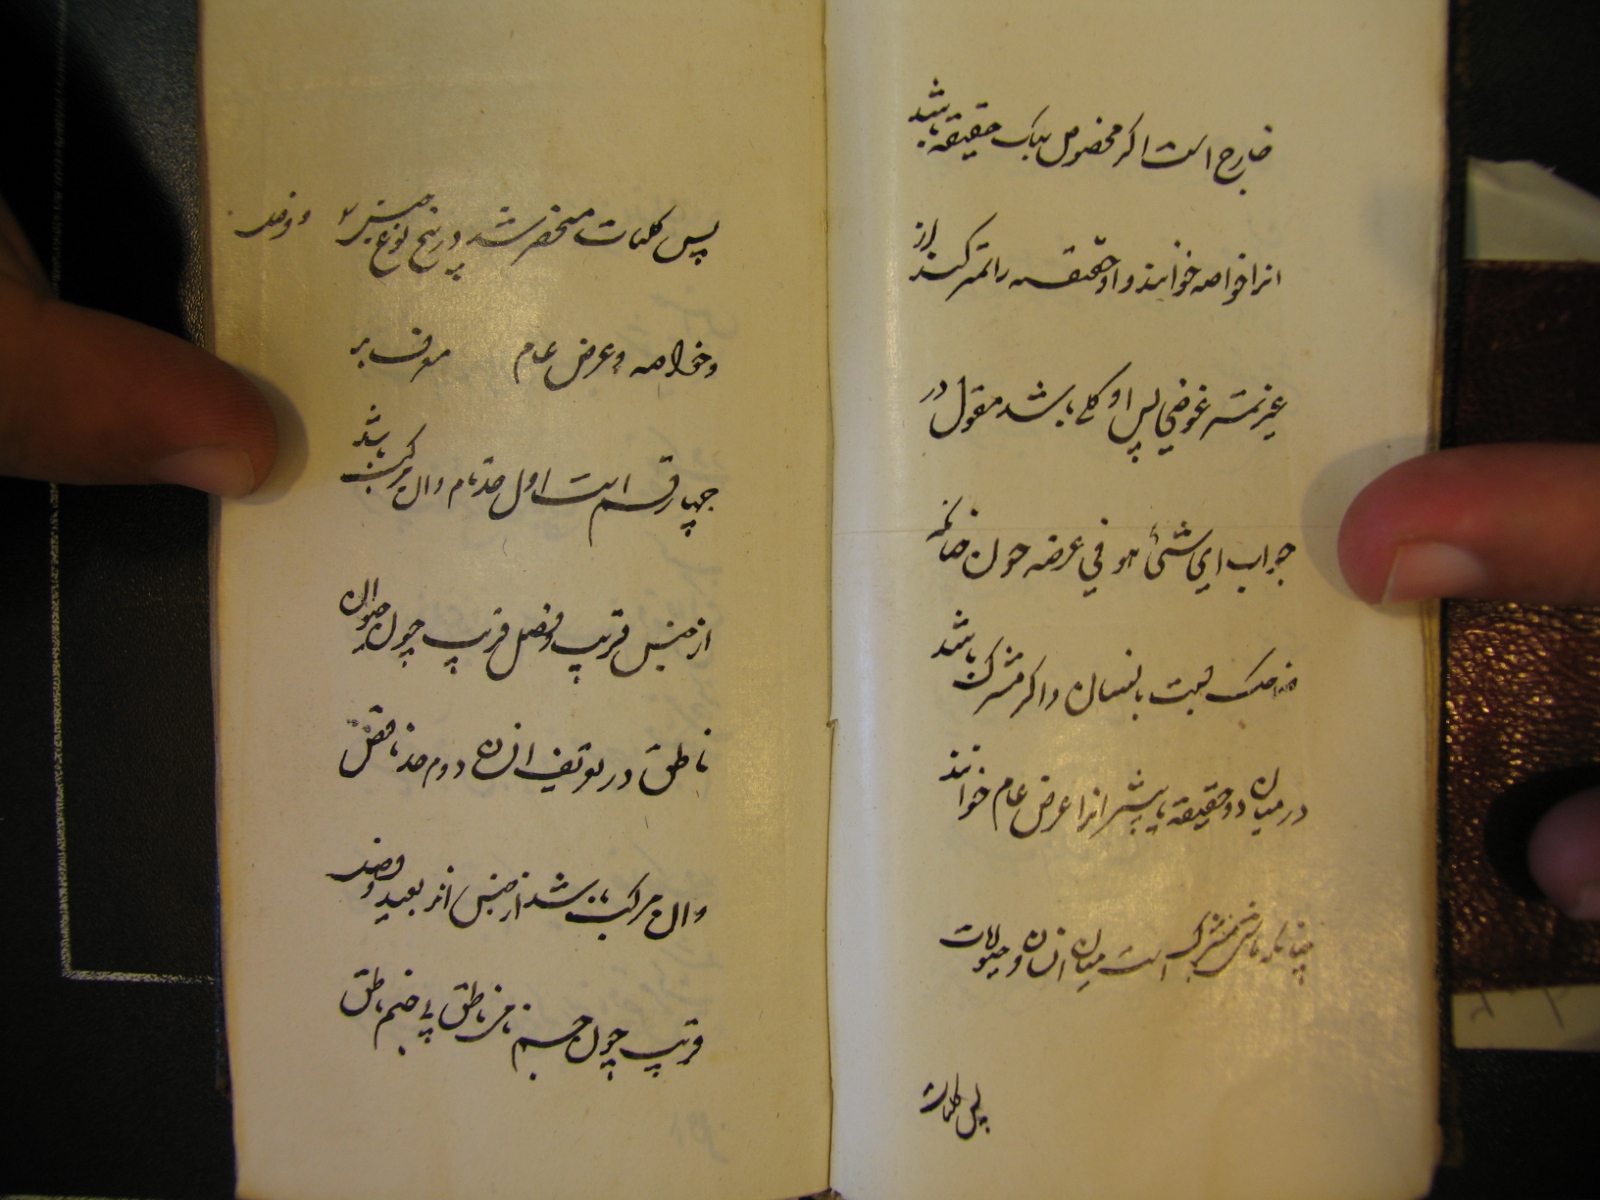 خارج است اکر مخصوص بیک حقیقة باشد
انرا خواصه خوانند و او حقیقه را تمیز کند از
غیر تمیز عرضی پس او کلی باشد مقول در
جواب ای شئ هو في عرضه چون خنانکه
ضاحک نسبت بانسان و اکر مشترک باشد
در میان دو حقیقة یا بیشتر انرا عرض عام خوانند
چنانکه ماشی مشترک است میان انسان و حیوانات
پس کلیات
پس کلیات منحصر شد در پنج نوع جنس و فصل
وخواصه وعرض عام معرف بر
چهار قسم است اول حد تام وان مرکب باشد
از جنس قریب و فصل قریب چون حیوان
ناطق در تعریف انسان دوم حد ناقص
وان مرکب باشد از جنس بعید وفصل
قریب چون جسم ناطق